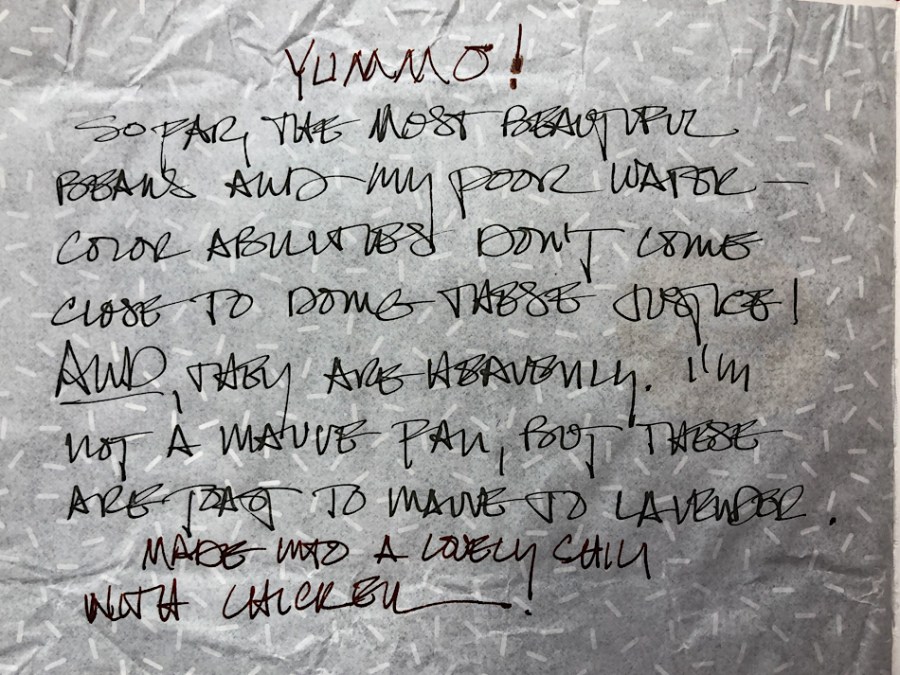 YUMMO!
SO FAR, THE MOST BEAUTIFUL
BEANS AND MY POOR WATER-
COLOR ABILITIES DON'T COME
CLOSE TO DOING THESE JUSTICE!
AND, THEY ARE HEAVENLY. I'M
NOT A MAUVE FAN, BUT THESE
ARE TO MAUVE TO LAVENDER.
MADE INTO A LOVELY CHILI
WITH CHICKEN!